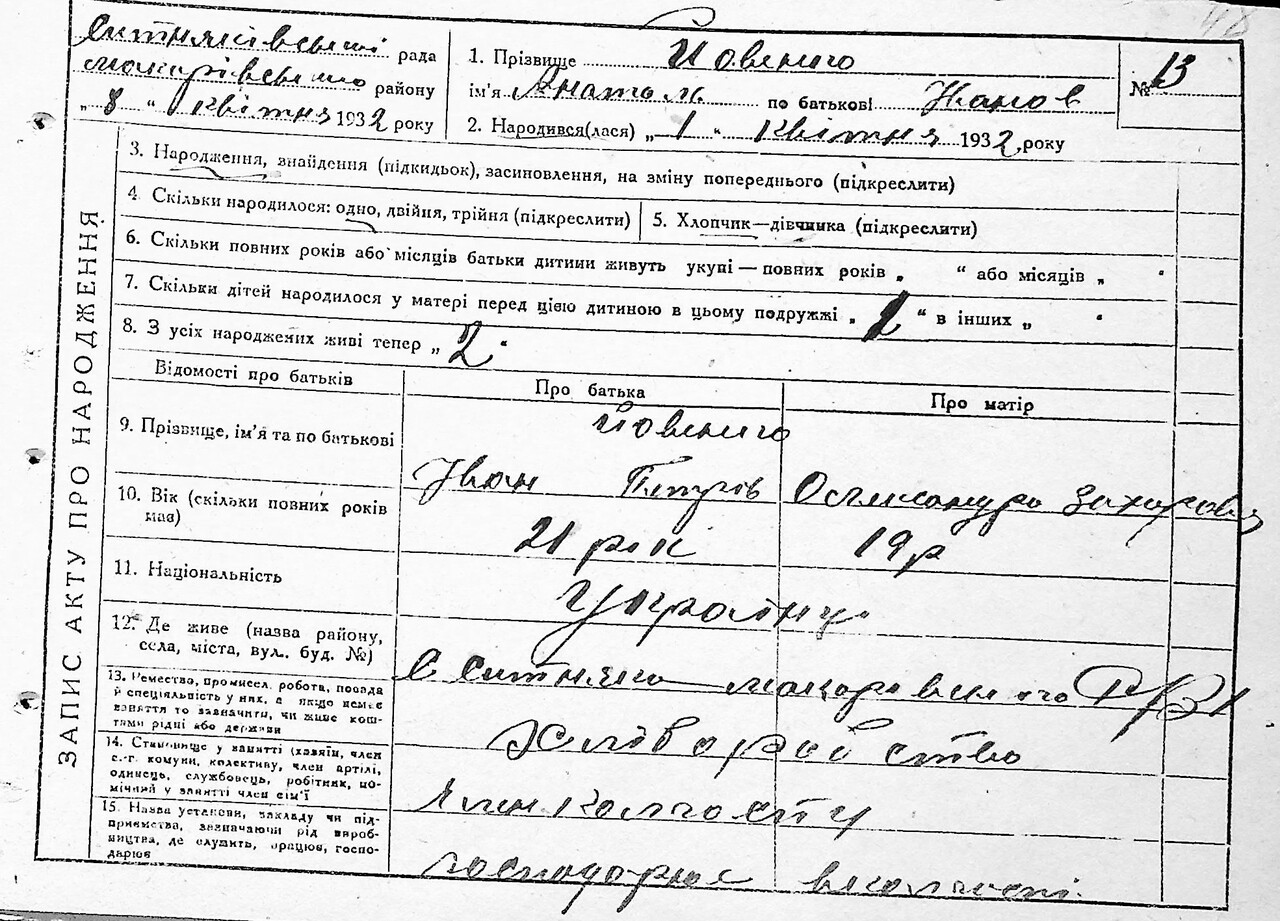 Ситняківській рада
Макарівського району
„ 8 “ квітня 1932 року
1. Прізвище
ім'я Анатол. по батькові Иванов
2. Народився(лася) „ 1 “ квітня 1932 року
№ 13
3. Народження, знайдення (підкидьок), засиновлення, на зміну попереднього (підкреслити)
4. Скільки народилося: одно, двійня, трійня (підкреслити)
5. Хлопчик—дівчинка (підкреслити)
6. Скільки повних років або місяців батьки дитини живуть укупі — повних років „ “ або місяців „ “
7. Скільки дітей народилося у матері перед цією дитиною в цьому подружжі „ “ в інших „ “
8. З усіх народжених живі тепер „ 2 “
ЗАПИС АКТУ ПРО НАРОДЖЕННЯ
Відомості про батьків
Про батька
Про матір
9. Прізвище, ім'я та по батькові
Іван Петрів Олександра Захаровна
10. Вік (скільки повних років має)
21 рік 19 р
11. Національність
Українці
12. Де живе (назва району, села, міста, вул. буд. №)
с Ситняки Макарівського
13. Ремество, промисел, робота, посада й спеціяльність у них, а якщо немає заняття то зазначити, чи живе коштами рідні або держави
Хліборобство
14. Становище у занятті (хазяїн, член с.-г. комуни, колективу, член артілі, одинець, службовець, робітник, помічний у занятті член сім'ї
член колгоспу
15. Назва установи, закладу чи підприємства, зазначаючи рід виробництва, де служить, працює, господарює
господарює в колгоспі.